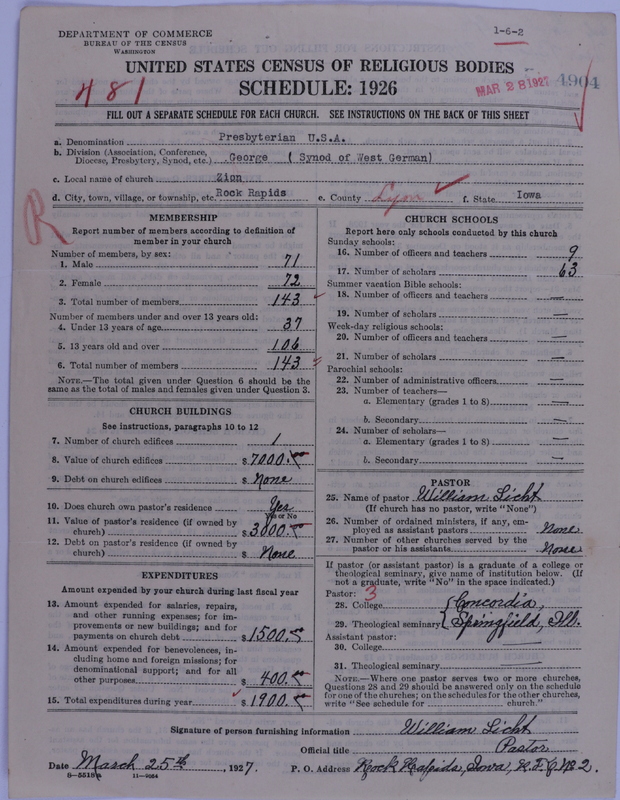 DEPARTMENT OF COMMERCE
BUREAU OF THE CENSUS
WASHINGTON
1-6-2
UNITED STATES CENSUS OF RELIGIOUS BODIES
SCHEDULE: 1926
481
MAR 28 1927
4904
FILL OUT A SEPARATE SCHEDULE FOR EACH CHURCH. SEE INSTRUCTIONS ON THE BACK OF THIS SHEET
a. Denomination Presbyterian U.S.A.
b. Division (Association, Conference, Diocese, Presbytery, Synod, etc.) George ( Synod of West German)
c. Local name of church Zion
d. City, town, village, or township, etc. Rock Rapids e. County Lyon f. State Iowa
R
MEMBERSHIP
Report number of members according to definition of
member in your church
Number of members, by sex:
1. Male 71
2. Female 72
3. Total number of members 143
Number of members under and over 13 years old:
4. Under 13 years of age 37
5. 13 years old and over 106
6. Total number of members 143
NOTE.—The total given under Question 6 should be
same as the total of males and females given under Question 3.
CHURCH BUILDINGS
See instructions, paragraphs 10 to 12
7. Number of church edifices 1
8. Value of church edifices $ 7000.00
9. Debt on church edifices $ None
10. Does church own pastor's residence Yes
Yes or No
11. Value of pastor's residence (if owned by
church) $ 3000.00
12. Debt on pastor's residence (if owned by
church) $ None
EXPENDITURES
Amount expended by your church during last fiscal year
13. Amount expended for salaries, repairs,
and other running expenses; for im-
provements or new buildings; and for
payments on church debt $ 1500.00
14. Amount expended for benevolences, in-
cluding home and foreign missions; for
denominational support; and for all
other purposes $ 400.00
15. Total expenditures during year $ 1900.00
CHURCH SCHOOLS
Report here only schools conducted by this church
Sunday schools:
16. Number of officers and teachers 9
17. Number of scholars 63
Summer vacation Bible schools:
18. Number of officers and teachers —
19. Number of scholars —
Week-day religious schools:
20. Number of officers and teachers —
21. Number of scholars —
Parochial schools:
22. Number of administrative officers —
23. Number of teachers—
a. Elementary (grades 1 to 8) —
b. Secondary —
24. Number of scholars—
a. Elementary (grades 1 to 8) —
b. Secondary —
PASTOR
25. Name of pastor William Licht
(If church has no pastor, write "None")
26. Number of ordained ministers, if any, em-
ployed as assistant pastors None
27. Number of other churches served by the
pastor or his assistants None
If pastor (or assistant pastor) is a graduate of a college or
theological seminary, give name of institution below. (If
not a graduate, write "No" in the space indicated.)
Pastor: 3
28. College { Concordia,
29. Theological seminary { Springfield, Ill.
Assistant pastor:
30. College —
31. Theological seminary —
NOTE.—Where one pastor serves two or more churches,
Questions 28 and 29 should be answered only on the schedule
for one of the churches; on the schedules for the other churches,
write "See schedule for church."
Signature of person furnishing information William Licht
Official title Pastor
Date March 25th, 1927. P. O. Address Rock Rapids, Iowa, R.F.D. No 2.
8-5518a 11-9064